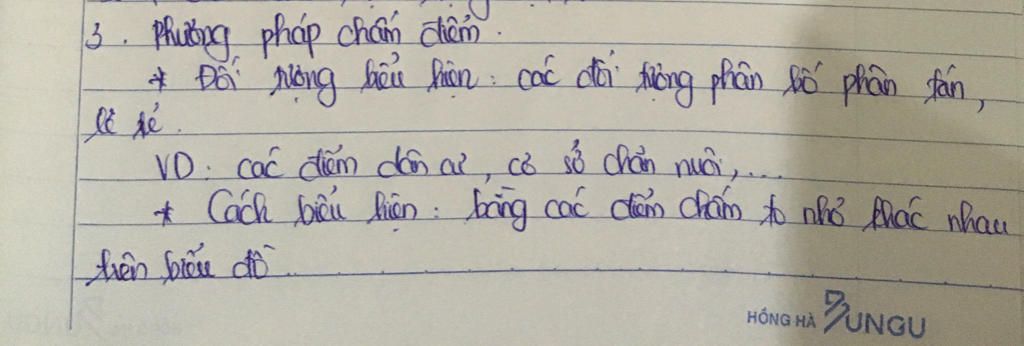 3. Phương pháp chấm điểm.
* Đối tượng biểu hiện: các đối tượng phân bố phân tán,
lẻ tẻ.
VD: các điểm dân cư, cơ sở chăn nuôi,...
* Cách biểu hiện: bằng các điểm chấm to nhỏ khác nhau
trên biểu đồ
HỒNG HÀ BUNGU